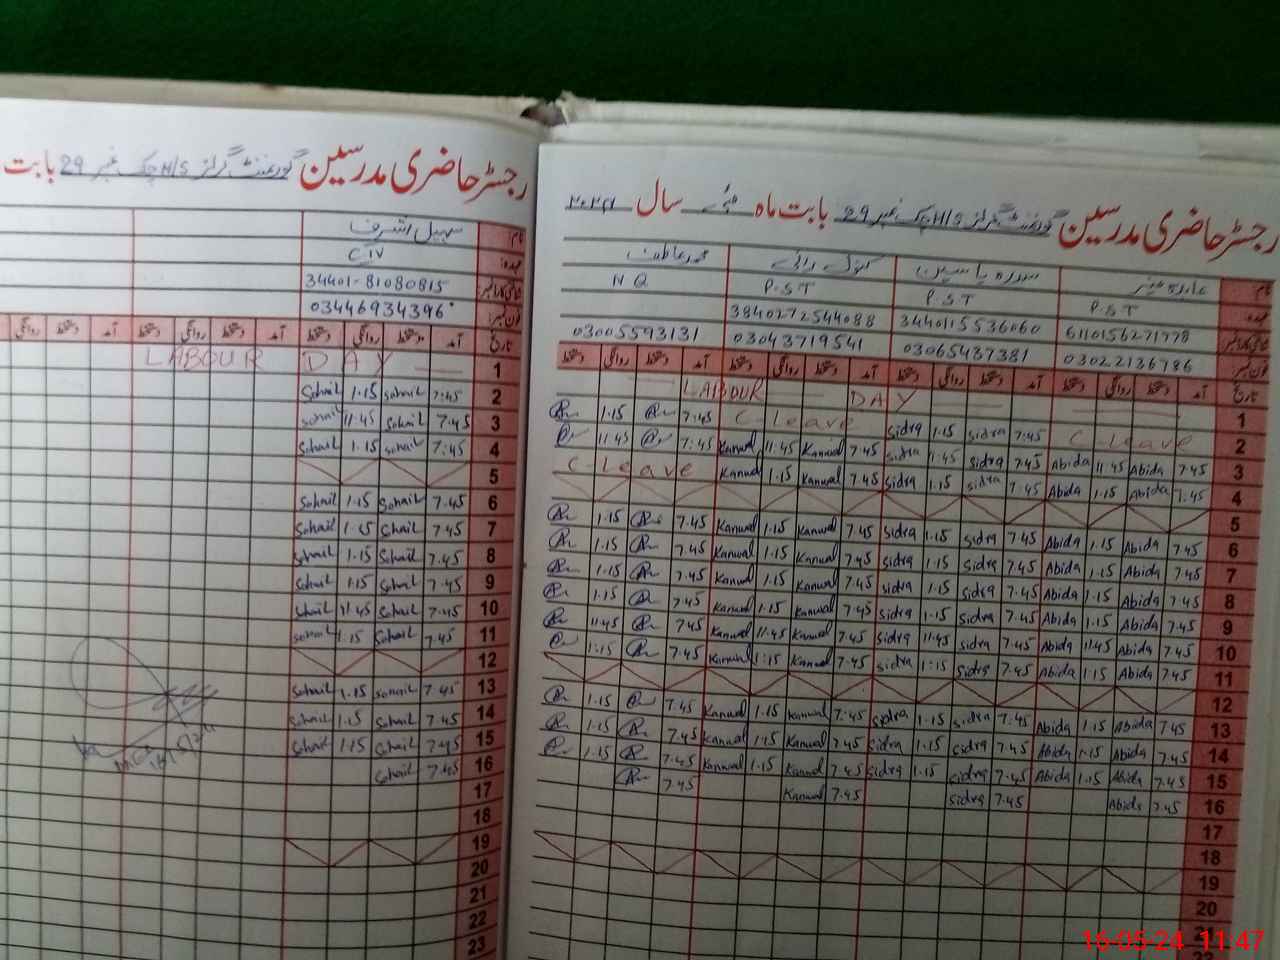 رجسٹر حاضری مدرسین گورنمنٹ گرلز H/S چک نمبر 29 بابت
نام سہیل اشرف
عہدہ: C IV
34401-81080815
03446934396
تاریخ آمد دستخط روانگی دستخط آمد دستخط روانگی دستخط آمد دستخط روانگی
1 LABOUR DAY
2 7:45 Sohail 1.15 Sohail
3 7.45 Sohail 11:45 Sohail
4 7:45 Sohail 1.15 Sohail
5
6 7.45 Sohail 1.15 Sohail
7 7.45 Sohail 1.15 Sohail
8 7.45 Sohail 1.15 Sohail
9 7.45 Sohail 1.15 Sohail
10 7.45 Sohail 11.45 Sohail
11 7.45 Sohail 1.15 Sohail
12
13 7.45 Sohail 1.15 Sohail
14 7.45 Sohail 1.15 Sohail
15 7.45 Sohail 1.15 Sohail
16 7.45 Sohail
17
18
19
20
21
22
23
رجسٹر حاضری مدرسین گورنمنٹ گرلز H/S چک نمبر 29 بابت ماہ مئی سال ۲۰۲۴
نام سدرہ یاسین کنول محمد عاطف
عہدہ: P.S.T P.S.T P.S.T NQ
6110156271778 3440115536060 3840272544088
03022136786 03065437381 03043719541 03005593131
تاریخ آمد دستخط روانگی دستخط آمد دستخط روانگی دستخط آمد دستخط روانگی دستخط آمد دستخط روانگی دستخط
1 LABOUR DAY
2 C-Leave 7:45 Sidra 1.15 Sidra C-Leave 7.45 1.15
3 7.45 Abida 11.45 Abida 7.45 Sidra 11.45 Sidra 7.45 Kanwal 11.45 Kanwal 7:45 11.45
4 7.45 Abida 1.15 Abida 7.45 Sidra 1.15 Sidra 7.45 Kanwal 1.15 Kanwal C-Leave
5
6 7.45 Abida 1.15 Abida 7.45 Sidra 1.15 Sidra 7.45 Kanwal 1.15 Kanwal 7.45 1.15
7 7.45 Abida 1.15 Abida 7.45 Sidra 1.15 Sidra 7.45 Kanwal 1.15 Kanwal 7.45 1.15
8 7.45 Abida 1.15 Abida 7.45 Sidra 1.15 Sidra 7.45 Kanwal 1.15 Kanwal 7.45 1.15
9 7.45 Abida 1.15 Abida 7.45 Sidra 1.15 Sidra 7.45 Kanwal 1.15 Kanwal 7.45 1.15
10 7.45 Abida 11.45 Abida 7.45 Sidra 11.45 Sidra 7.45 Kanwal 11.45 Kanwal 7.45 11.45
11 7.45 Abida 1.15 Abida 7.45 Sidra 1:15 Sidra 7.45 Kanwal 1:15 Kanwal 7.45 1:15
12
13 7.45 Abida 1.15 Abida 7:45 Sidra 1.15 Sidra 7.45 Kanwal 1.15 Kanwal 7.45 1.15
14 7.45 Abida 1.15 Abida 7.45 Sidra 1.15 Sidra 7.45 Kanwal 1.15 Kanwal 7.45 1.15
15 7.45 Abida 1.15 Abida 7.45 Sidra 1.15 Sidra 7.45 Kanwal 1.15 Kanwal 7.45 1.15
16 7.45 Abida 7.45 Sidra 7.45 Kanwal 7.45
17
18
19
20
21
16-05-24 11:47